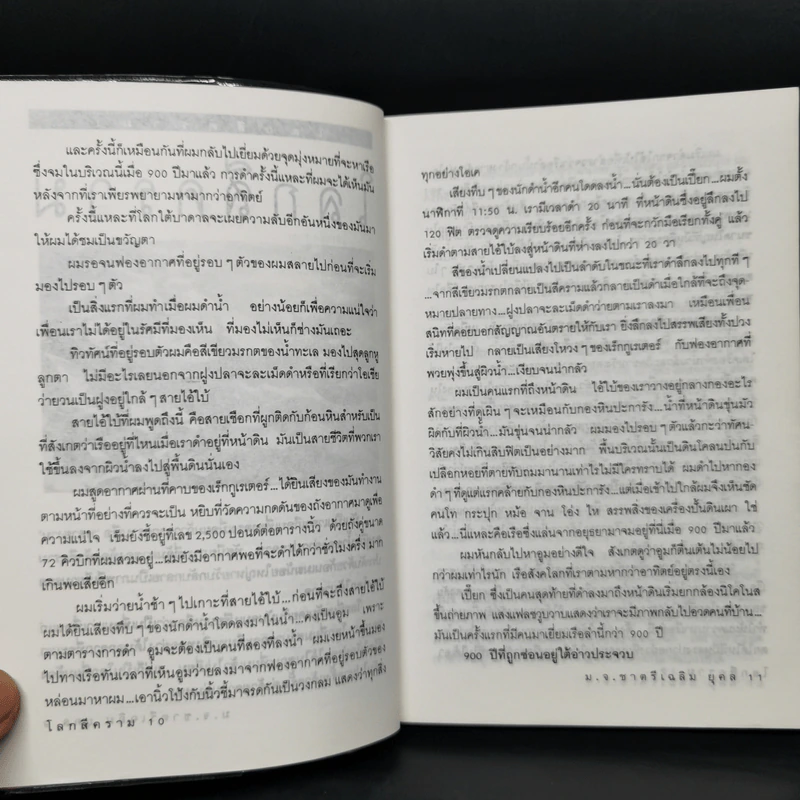 และครั้งนี้ก็เหมือนกันที่ผมกลับไปเยี่ยมด้วยจุดมุ่งหมายที่จะหาเรือ
ซึ่งจมในบริเวณนี้เมื่อ 900 ปีมาแล้ว การดำครั้งนี้แหละที่ผมจะได้เห็นมัน
หลังจากที่เราเพียรพยายามหามากว่าอาทิตย์
ครั้งนี้แหละที่โลกใต้บาดาลจะเผยความลับอีกอันหนึ่งของมันมา
ให้ผมได้ชมเป็นขวัญตา
ผมรอจนฟองอากาศที่อยู่รอบๆตัวของผมสลายไปก่อนที่จะเริ่ม
มองไปรอบๆตัว
เป็นสิ่งแรกที่ผมทำเมื่อผมดำน้ำ อย่างน้อยก็เพื่อความแน่ใจว่า
เพื่อนเราไม่ได้อยู่ในรัศมีที่มองเห็น ที่มองไม่เห็นก็ช่างมันเถอะ
ทิวทัศน์ที่อยู่รอบตัวผมคือสีเขียวมรกตของน้ำทะเล มองไปสุดลูกหู
ลูกตา ไม่มีอะไรเลยนอกจากฝูงปลาจะละเม็ดดำหรือที่เรียกว่าโอเชีย
ว่ายวนเป็นฝูงอยู่ใกล้ๆสายไอ้ใบ้
สายไอ้ใบ้ที่ผมพูดถึงนี้ คือสายเชือกที่ผูกติดกับก้อนหินสำหรับเป็น
ที่สังเกตว่าเรืออยู่ที่ไหนเมื่อเราดำอยู่ที่หน้าดิน มันเป็นสายชีวิตที่พวกเรา
ใช้ขึ้นลงจากผิวน้ำลงไปสู่พื้นดินนั่นเอง
ผมสูดอากาศผ่านที่คาบของเร็กกูเรเตอร์...ได้ยินเสียงของมันทำงาน
ตามหน้าที่อย่างที่ควรจะเป็น หยิบที่วัดความกดดันของถังอากาศมาดูเพื่อ
ความแน่ใจ เข็มยังชี้อยู่ที่เลข 2,500 ปอนด์ต่อตารางนิ้ว ด้วยถังคู่ขนาด
72 คิวบิกที่ผมสวมอยู่...ผมยังมีอากาศพอที่จะดำได้กว่าชั่วโมงครึ่ง มาก
เกินพอเสียอีก
ผมเริ่มว่ายน้ำช้าๆไปเกาะที่สายไอ้ใบ้...ก่อนที่จะถึงสายไอ้ใบ้
ผมได้ยินเสียงทึบๆของนักดำน้ำโดดลงมาในน้ำ...คงเป็นอูม เพราะ
ตามตารางการดำ อูมจะต้องเป็นคนที่สองที่ลงน้ำ ผมเงยหน้าขึ้นมอง
ไปทางเรือทันเวลาที่เห็นอูมว่ายลงมาจากฟองอากาศที่อยู่รอบตัวของ
หล่อนมาหาผม...เอานิ้วโป้งกับนิ้วชี้มาจรดกันเป็นวงกลม แสดงว่าทุกสิ่ง
โลกสีคราม 10
ทุกอย่างโอเค
เสียงทึบๆของนักดำน้ำอีกคนโดดลงน้ำ...นั่นต้องเป็นเปี๊ยก...ผมตั้ง
นาฬิกาที่ 11:50 น. เรามีเวลาดำ 20 นาที ที่หน้าดินซึ่งอยู่ลึกลงไป
120 ฟิต ตรวจดูความเรียบร้อยอีกครั้ง ก่อนที่จะกวักมือเรียกทั้งคู่ แล้ว
เริ่มดำตามสายไอ้ใบ้ลงสู่หน้าดินที่ห่างลงไปกว่า 20 วา
สีของน้ำเปลี่ยนแปลงไปเป็นลำดับในขณะที่เราดำลึกลงไปทุกทีๆ
...จากสีเขียวมรกตกลายเป็นสีครามแล้วกลายเป็นดำเมื่อใกล้ที่จะถึงจุด-
หมายปลายทาง...ฝูงปลาจะละเม็ดดำว่ายตามเราลงมา เหมือนเพื่อน
สนิทที่คอยบอกสัญญาณอันตรายให้กับเรา ยิ่งลึกลงไปสรรพเสียงทั้งปวง
เริ่มหายไป กลายเป็นเสียงโหวงๆของเร็กกูเรเตอร์ กับฟองอากาศที่
พวยพุ่งขึ้นสู่ผิวน้ำ...เงียบจนน่ากลัว
ผมเป็นคนแรกที่ถึงหน้าดิน ไอ้ใบ้ของเราวางอยู่กลางกองอะไร
สักอย่างที่ดูเผินๆจะเหมือนกับกองหินปะการัง...น้ำที่หน้าดินขุ่นมัว
ผิดกับที่ผิวน้ำ...มันขุ่นจนน่ากลัว ผมมองไปรอบๆตัวแล้วกะว่าทัศน-
วิสัยคงไม่เกินสิบฟิตเป็นอย่างมาก พื้นบริเวณนั้นเป็นดินโคลนปนกับ
เปลือกหอยที่ตายทับถมมานานเท่าไรไม่มีใครทราบได้ ผมดำไปหากอง
ดำๆที่ดูแต่แรกคล้ายกับกองหินปะการัง...แต่เมื่อเข้าไปใกล้ผมจึงเห็นชัด
คนโท กระปุก หม้อ จาน โอ่ง ไห สรรพสิ่งของเครื่องปั้นดินเผา ใช่
แล้ว...นี่แหละคือเรือซึ่งแล่นจากอยุธยามาจมอยู่ที่นี่เมื่อ 900 ปีมาแล้ว
ผมหันกลับไปหาอูมอย่างดีใจ สังเกตดูว่าอูมก็ตื่นเต้นไม่น้อยไป
กว่าผมเท่าไรนัก เรือสังคโลกที่เราตามหากว่าอาทิตย์อยู่ตรงนี้เอง
เปี๊ยก ซึ่งเป็นคนสุดท้ายที่ดำลงมาถึงหน้าดินเริ่มยกกล้องนิโคโนส
ขึ้นถ่ายภาพ แสงแฟลชวูบวาบแสดงว่าเราจะมีภาพกลับไปอวดคนที่บ้าน...
มันเป็นครั้งแรกที่มีคนมาเยี่ยมเรือลำนี้กว่า 900 ปี
900 ปีที่ถูกซ่อนอยู่ใต้อ่าวประจวบ
ม.จ.ชาตรีเฉลิม ยุคล 11